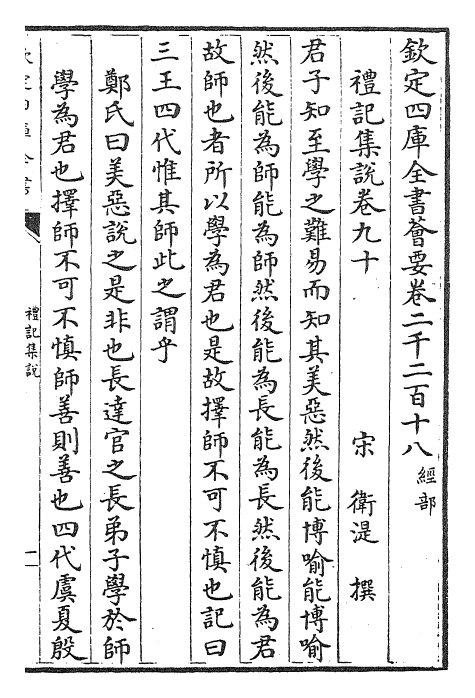 欽定四庫全書薈要卷二千二百十八經部
禮記集說卷九十
宋 衛湜 撰
君子知至學之難易而知其美惡然後能博喻能博喻
然後能為師能為師然後能為長能為長然後能為君
故師也者所以學為君也是故擇師不可不慎也記曰
三王四代惟其師此之謂乎
鄭氏曰美惡說之是非也長達官之長弟子學於師
學為君也擇師不可不慎師善則善也四代虞夏殷
禮記集說